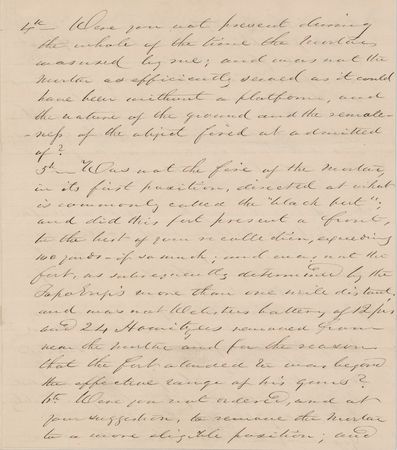 4th— Were you not present during
the whole of the time the Mortar
was used by me; and was not the
Mortar as efficiently served as it could
have been without a platform, and
the nature of the ground and the remote-
-ness of the object fired at admitted
of?
5th— Was not the fire of the Mortar,
in its first position, directed at what
is commonly called the "black fort";
and did this fort present a front,
to the best of your recollection, exceeding
100 yards— if so much; and was not the
fort, as subsequently determined by the
Topo Engrs more than one mile distant,
and was not Websters battery of 12 prs
and 24 Howitzers removed from
near the Mortar and for the reason
that the fort alluded to was beyond
the effective range of his guns?
6th Were you not ordered, and at
your suggestion, to remove the Mortar
to a more eligible position; and